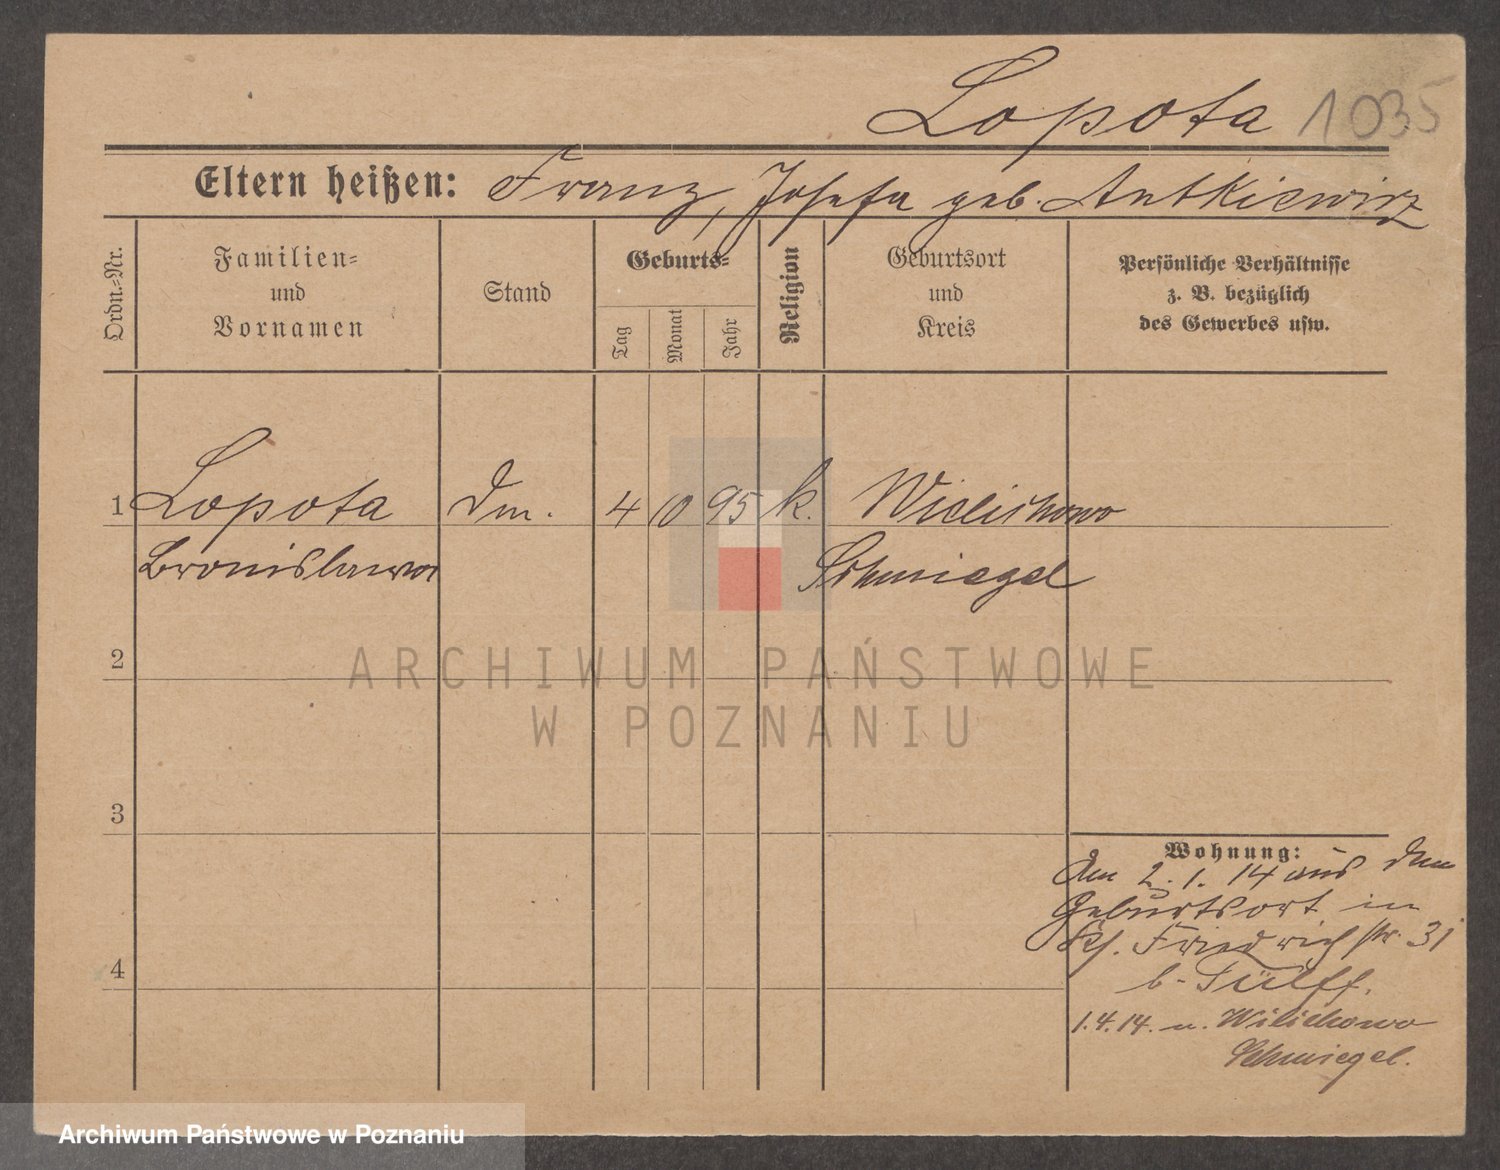 Lopota 1035
Eltern heißen: Franz, Josefa geb. Antkiewicz
Ordn.-Nr.
Familien-
und
Vornamen
Stand
Geburts-
Tag
Monat
Jahr
Religion
Geburtsort
und
Kreis
Persönliche Verhältnisse
z. B. bezüglich
des Gewerbes usw.
1 Lopota Dm. 4 10 95 k. Wielichowo
Bronislawa Schmiegel
2
ARCHIWUM PAŃSTWOWE
W POZNANIU
3
Wohnung:
Am 2.1.14 aus dem
Geburtsort in
Friedrichstr. 31
b.
1.4.14. n. Wilichowo
Schmiegel.
4
Archiwum Państwowe w Poznaniu